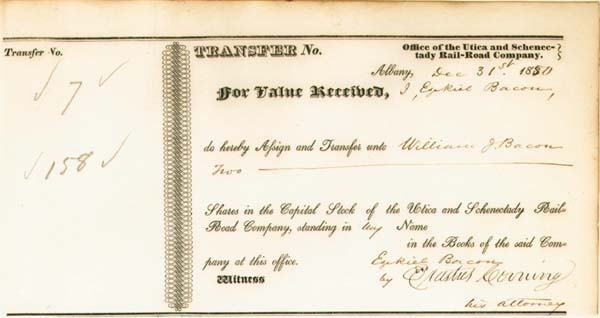 Transfer No.
7
158
TRANSFER No.
Office of the Utica and Schenec-
tady Rail-Road Company.
Albany, Dec 31st. 1850
For Value Received,
I, Ezekiel Bacon,
do hereby Assign and Transfer unto William J. Bacon
Two
Shares in the Capital Stock of the Utica and Schenectady Rail-
Road Company, standing in my Name
in the Books of the said Com-
pany at this office.
Ezekiel Bacon
Witness
by Erastus Corning
his attorney